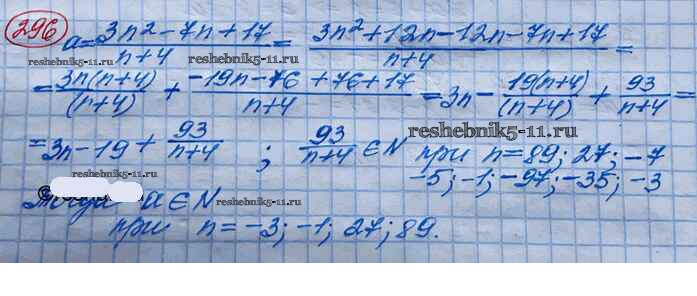 296
a = (3n² - 7n + 17)/(n+4) = (3n² + 12n - 12n - 7n + 17)/(n+4) =
reshebnik5-11.ru reshebnik5-11.ru
= 3n(n+4)/(n+4) + (-19n - 76 + 76 + 17)/(n+4) = 3n - 19(n+4)/(n+4) + 93/(n+4) =
reshebnik5-11.ru
= 3n - 19 + 93/(n+4) ; 93/(n+4) ∈ N при n = 89; 27; -7
reshebnik5-11.ru
-5; -1; -97; -35; -3
reshebnik5-11.ru
Тогда a ∈ N
reshebnik5-11.ru
при n = -3; -1; 27; 89.